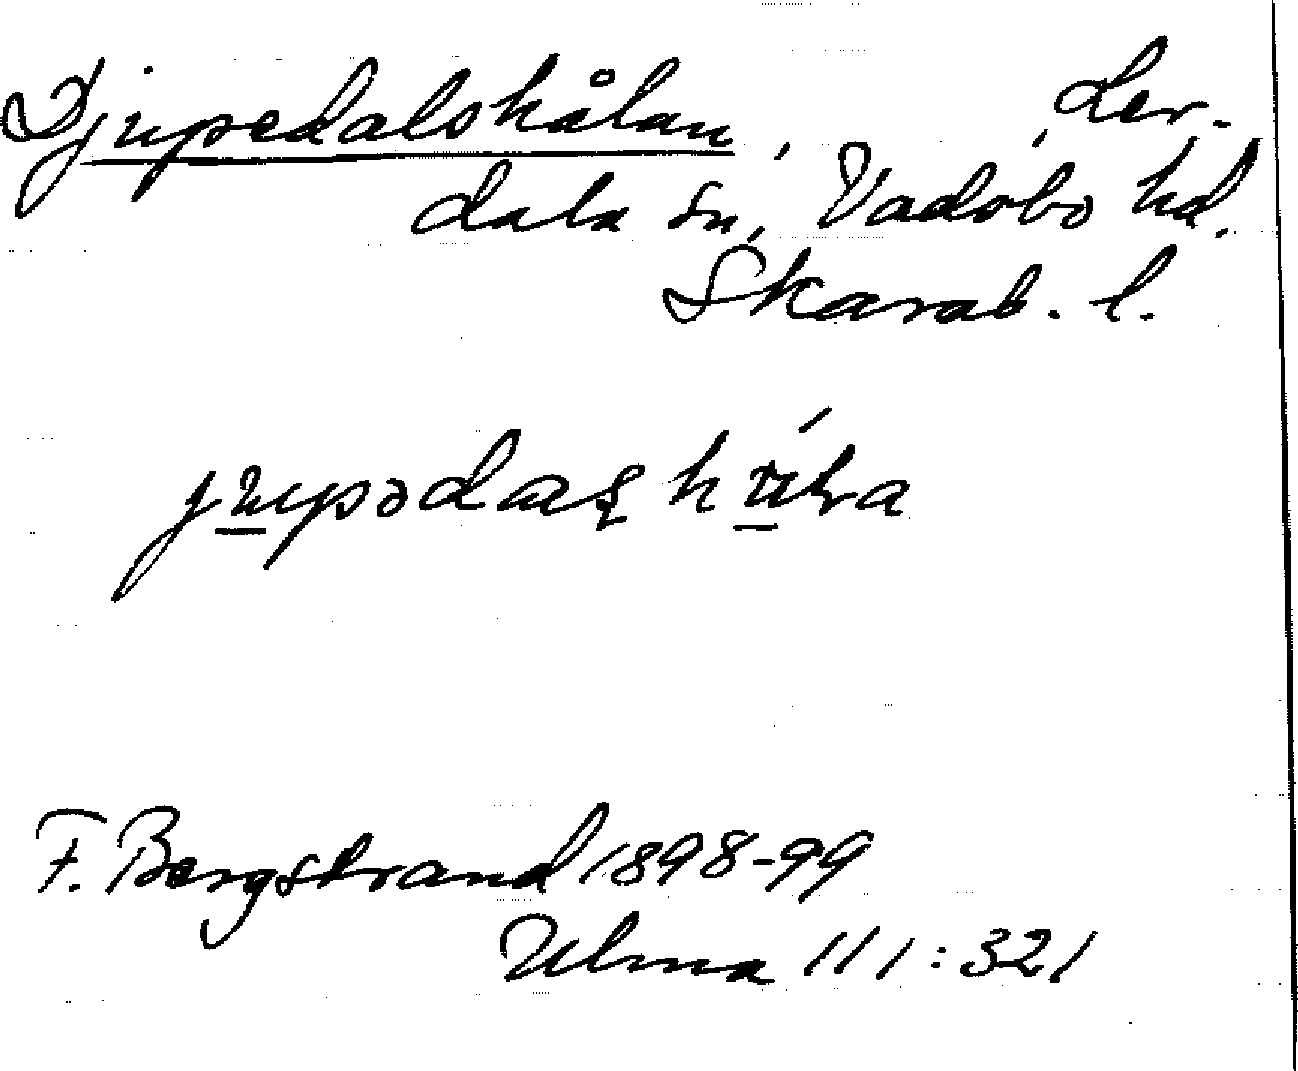 Djupedalshålan, Ler-
dala sn, Vadsbo hd.
Skarab. l.
F. Bergstrand 1898-99
Ulma 111:321